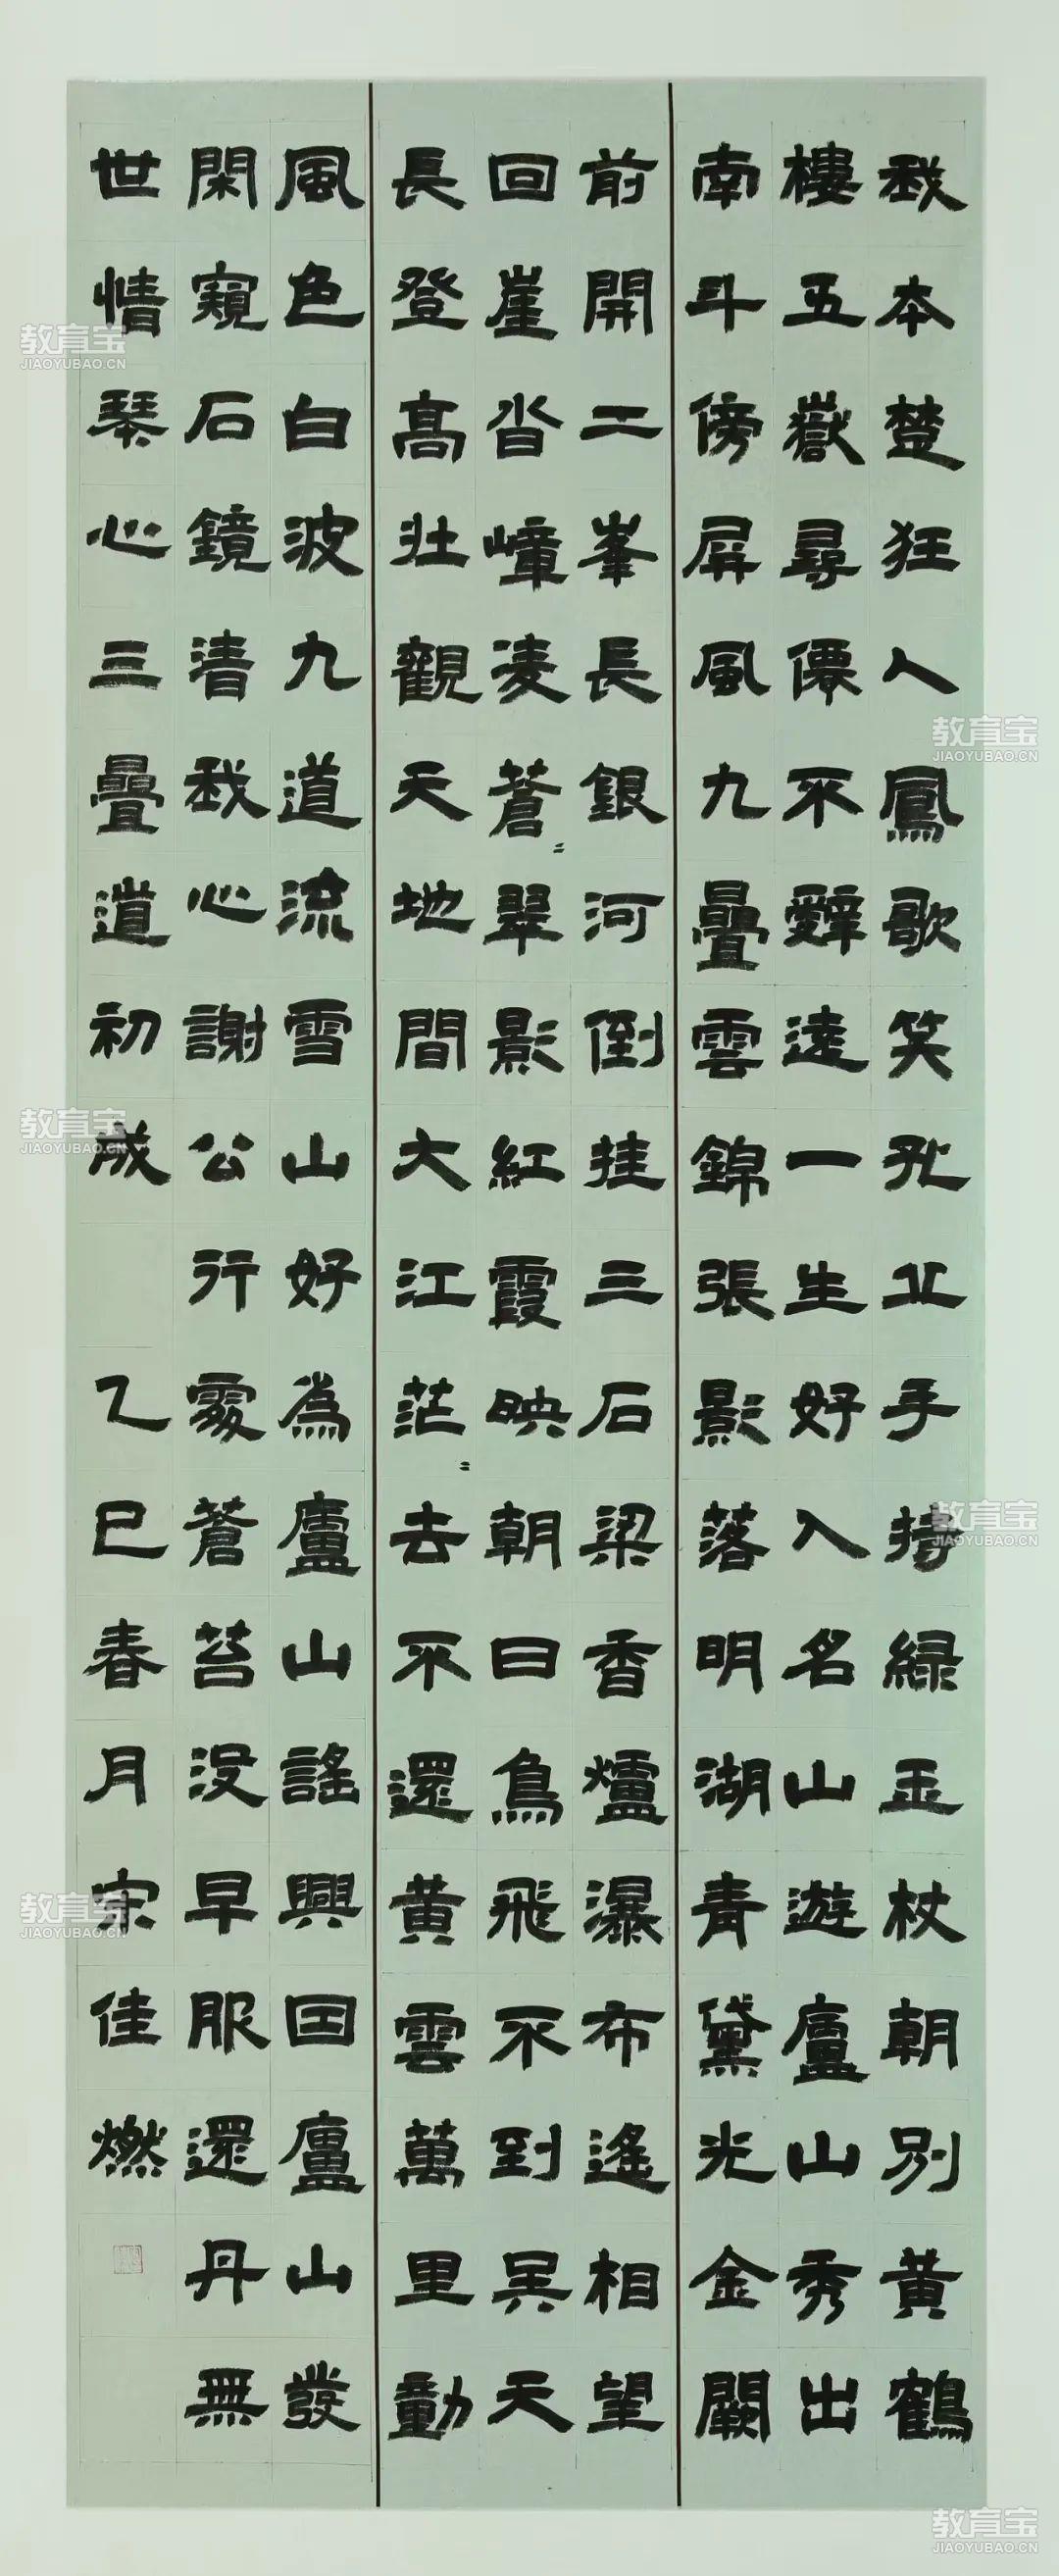 我本楚狂人鳳歌笑孔丘手持緑玉杖朝別黃鶴
樓五嶽尋僊不辭遠一生好入名山遊廬山秀出
南斗傍屏風九疊雲錦張影落明湖青黛光金闕
前開二峯長銀河倒挂三石梁香爐瀑布遙相望
回崖沓嶂凌蒼〻翠影紅霞映朝日鳥飛不到吳天
長登高壯觀天地間大江茫〻去不還黃雲萬里動
風色白波九道流雪山好為廬山謠興因廬山發
閑窺石鏡清我心謝公行處蒼苔没早服還丹無
世情琴心三疊道初成 乙巳春月宗佳燃
教育宝
JIAOYUBAO.CN
教育宝
JIAOYUBAO.CN
教育宝
JIAOYUBAO.CN
教育宝
JIAOYUBAO.CN
教育宝
JIAOYUBAO.CN
教育宝
JIAOYUBAO.CN